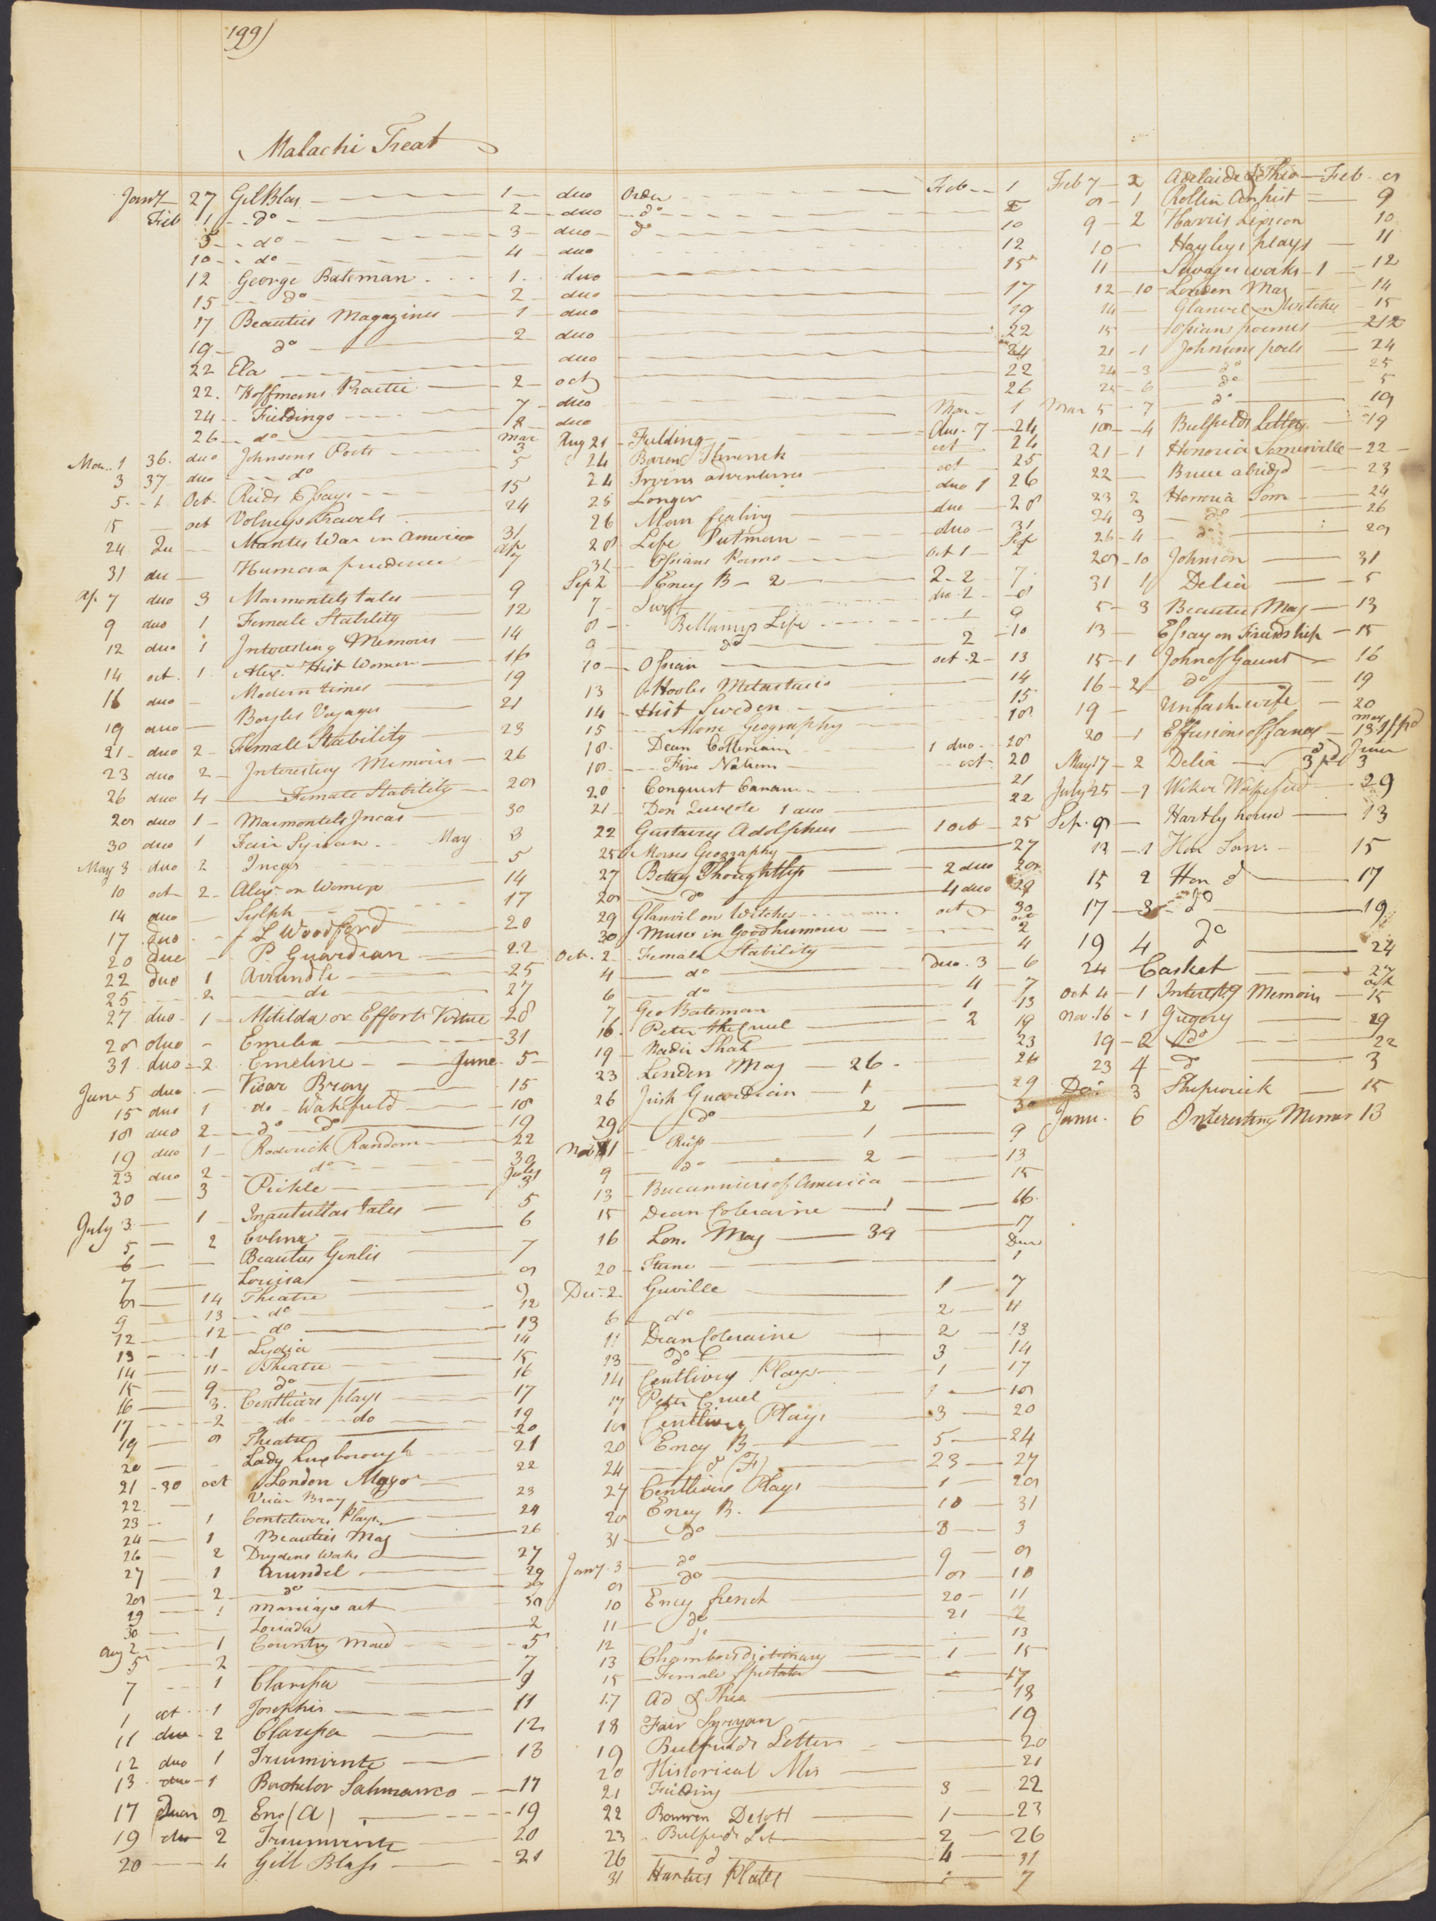 199)
Malachi Treat
Jany 27 Gil Blas 1 duo Octr Feb 1
Feb 1 do 2 duo do
5 do 3 duo do 10
10 do 4 duo 12
12 George Bateman 1 duo 15
15 do 2 duo 17
17 Beauties Magazines 1 duo 19
19 do 2 duo 22
22 Ela duo 24
22 Hoffmans Practic 2 oct 22
24 Fieldings 7 duo 26
26 do 8 duo Mar 1
Mar 1 36 duo Johnsons Poets Mar 3
3 37 duo do 5
5 1 Oct Reids Essays 15
15 oct Volneys Travels 24
24 Du Mantes War in America 31
31 du Human prudence Ap 7
Ap 7 duo 3 Marmontels tales 9
9 duo 1 Female Stability 12
12 duo 1 Interesting Memoirs 14
14 oct 1 Alexr Hist Women 16
16 duo Modern times 19
19 duo Boyles Voyages 21
21 duo 2 Female Stability 23
23 duo 2 Interesting Memoirs 26
26 duo 4 Female Stability 28
28 duo 1 Marmontels Incas 30
30 duo 1 Fair Syrian May 3
May 3 duo 2 Incas 5
10 oct 2 Alexr on Women 14
14 duo Sylph 17
17 duo L Woodford 20
20 due P. Guardian 22
22 duo 1 Arundle 25
25 2 do 27
27 duo 1 Matilda or Efforts Virtue 28
28 duo Emelia 31
31 duo 2 Emeline June 5
June 5 duo Vicar Bray 15
15 duo 1 do Wakefield 18
18 duo 2 do do 19
19 duo 1 Roderick Random 22
23 duo 2 do 30
30 3 Pickle July 3
July 3 1 Inatullas tales 5
5 2 Evlina 6
6 Beauties Genlis 7
7 Louisa 8
8 14 Theatre 9
9 13 do 12
12 12 do 13
13 1 Lydia 14
14 11 Theatre 15
15 9 do 16
16 3 Centlivrs plays 17
17 2 do do 19
19 8 Theatre 20
20 Lady Luxborough 21
21 30 oct London Mag 22
22 Vicar Bray 23
23 1 Centilivers Plays 24
24 1 Beauties Mag 26
26 2 Drydens Works 27
27 1 Arundel 29
28 2 do 29
29 1 Marriage act 30
30 Louiada 2
Aug 2 1 Country Maid 5
5 2 7
7 1 Clarissa 9
1 oct 1 Josephus 11
11 duo 2 Clarissa 12
12 duo 1 Triumvirate 13
13 duo 1 Bachelor Salmanco 17
17 Quar 2 Enc (A) 19
19 duo 2 Triumvirate 20
20 4 Gill Blass 21
Aug 21 Fielding duo 7 24
24 Barons Henrick oct 24
24 Irvins adventures oct 25
25 Longer duo 1 26
26 Man feeling duo 28
28 Life Putman duo 31
31 Ossians Poems oct 1 Sep 2
Sep 2 Ency B 2 2 2 7
7 Swift duo 2 8
8 Bellamys Life 1 9
9 do 2 10
10 Ossian oct 2 13
13 Hooles Metastasio 14
14 Hist Sweden 15
15 Morse Geography 18
18 Dean Collerain 1 duo 20
18 Five Nations oct 20
20 Conquest Canaan 21
21 Don Quixote 1 duo 22
22 Gustavus Adolphus 1 oct 25
25 Morses Geography 27
27 Betsy Thoughtless 2 duo 28
28 do 4 duo 29
29 Glanvil on Witches oct 30
30 Muses in Good humour Oct 2
Octr 2 Female Stability 4
4 do duo 3 6
6 do 4 7
7 Geo Bateman 1 13
16 Peter the Cruel 2 19
19 Nadir Shah 23
23 London Mag 26 26
26 Irish Guardian 1 29
29 do 2 30
Nov 1 Reiss 1 9
9 do 2 13
13 Bucanniers of America 15
15 Dean Coleraine 1 16
16 Lon. Mag 39 17
20 Sterne Decr 1
Dec 2 Greville 1 7
6 do 2 11
11 Dean Coleraine 2 13
13 do 3 14
14 Centlivry Plays 1 17
17 Peter Cruel 1 18
18 Centlivry Plays 3 20
20 Ency B 5 24
24 do (F) 23 27
27 Centlivirs Plays 1 28
28 Ency B. 10 31
31 do 8 3
Jany 3 do 9 8
8 do 10
10 Ency french 20 11
11 do 21 2
12 do 13
13 Chambers dictionary 1 15
15 Female Spectator 17
17 Ad & Theo 18
18 Fair Syryan 19
19 Bellfields Letters 20
20 Historical Mis 21
21 Fielding 3 22
22 Bowen Delott 1 23
23 Bellfields Let 2 26
26 do 4 31
31 Hunters Plates 7
Feb 7 2 Adelaide & Theo Feb 8
8 1 Rollin An hist 9
9 2 Harris Lipson 10
10 Hayleys plays 11
11 Savages works 1 12
12 10 London Mag 14
14 Glanvel on Witches 15
15 Ossians poems 21
21 1 Johnsons poets 24
24 3 do 25
25 6 do 5
Mar 5 7 do 19
18 4 Bellfields Letters 19
21 1 Honoria Somerville 22
22 Bruce abridgd 23
23 2 Honoria Som 24
24 3 do 26
26 4 do 28
28 10 Johnson 31
31 1 Delia 5
5 3 Beauties Mag 13
13 Essay on Friendship 15
15 1 John of Gaunt 16
16 2 do 19
19 Unfash wife 20
20 1 Effusions of fancy May 13
May 17 2 Delia June 3
July 25 1 Vicar Wakefield 29
Sep. 9 Hartly house 13
13 1 Hon Som 15
15 2 Hon d 17
17 3 do 19
19 4 do 24
24 Casket 27
Oct 4 1 Interestg Memoirs oct 15
Nov. 16 1 Gregory 19
19 2 do 22
23 4 do 3
Dec 3 Shipwrick 15
Janu. 6 Interesting Memoir 13